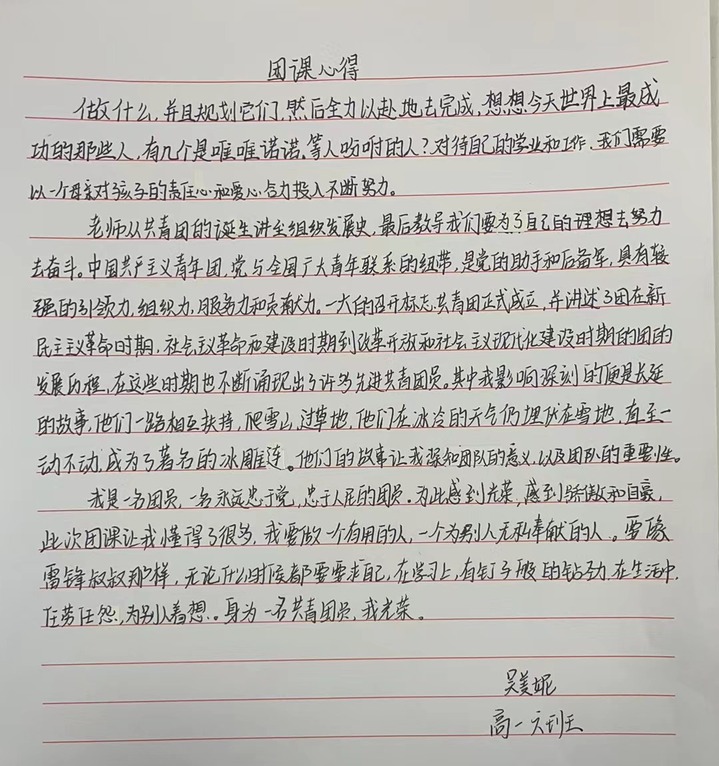 团课心得
做什么,并且规划它们,然后全力以赴地去完成,想想今天世界上最成
功的那些人,有几个是唯唯诺诺,等人吩咐的人?对待自己的学业和工作,我们需要
以一个母亲对孩子的责任心和爱心合力投入不断努力。
老师从共青团的诞生讲至组织发展史,最后教导我们要为了自己的理想去努力
去奋斗。中国共产主义青年团,党与全国广大青年联系的纽带,是党的助手和后备军,具有较
强的引领力,组织力,服务力和贡献力。一大的召开标志共青团正式成立,并讲述了团在新
民主主义革命时期,社会主义革命和建设时期到改革开放和社会主义现代化建设时期的团的
发展历程,在这些时期也不断涌现出了许多先进共青团员。其中我影响深刻的便是长延
的故事,他们一路相互扶持,爬雪山,过草地,他们在冰冷的天气仍埋伏在雪地,直至一
动不动,成为了著名的冰雕连。他们的故事让我深知团队的意义,以及团队的重要性。
我是一名团员,一名永远忠于党,忠于人民的团员。为此感到光荣,感到骄傲和自豪,
此次团课让我懂得了很多,我要做一个有用的人,一个为别人无私奉献的人。要像
雷锋叔叔那样,无论什么时候都要要求自己,在学习上,有钉子般的钻劲,在生活中,
任劳任怨,为别人着想。身为一名共青团员,我光荣。
吴美妮
高一六班